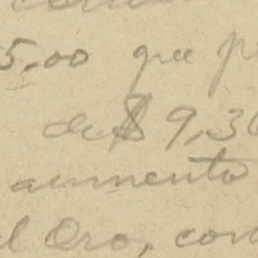 5.00 que p
de $ 9,36
aumento
el Oro, con